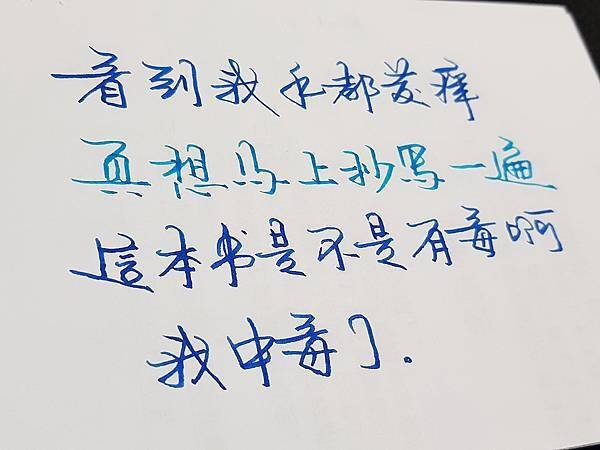 看到我手都发痒
真想马上抄写一遍
這本书是不是有毒啊
我中毒了.